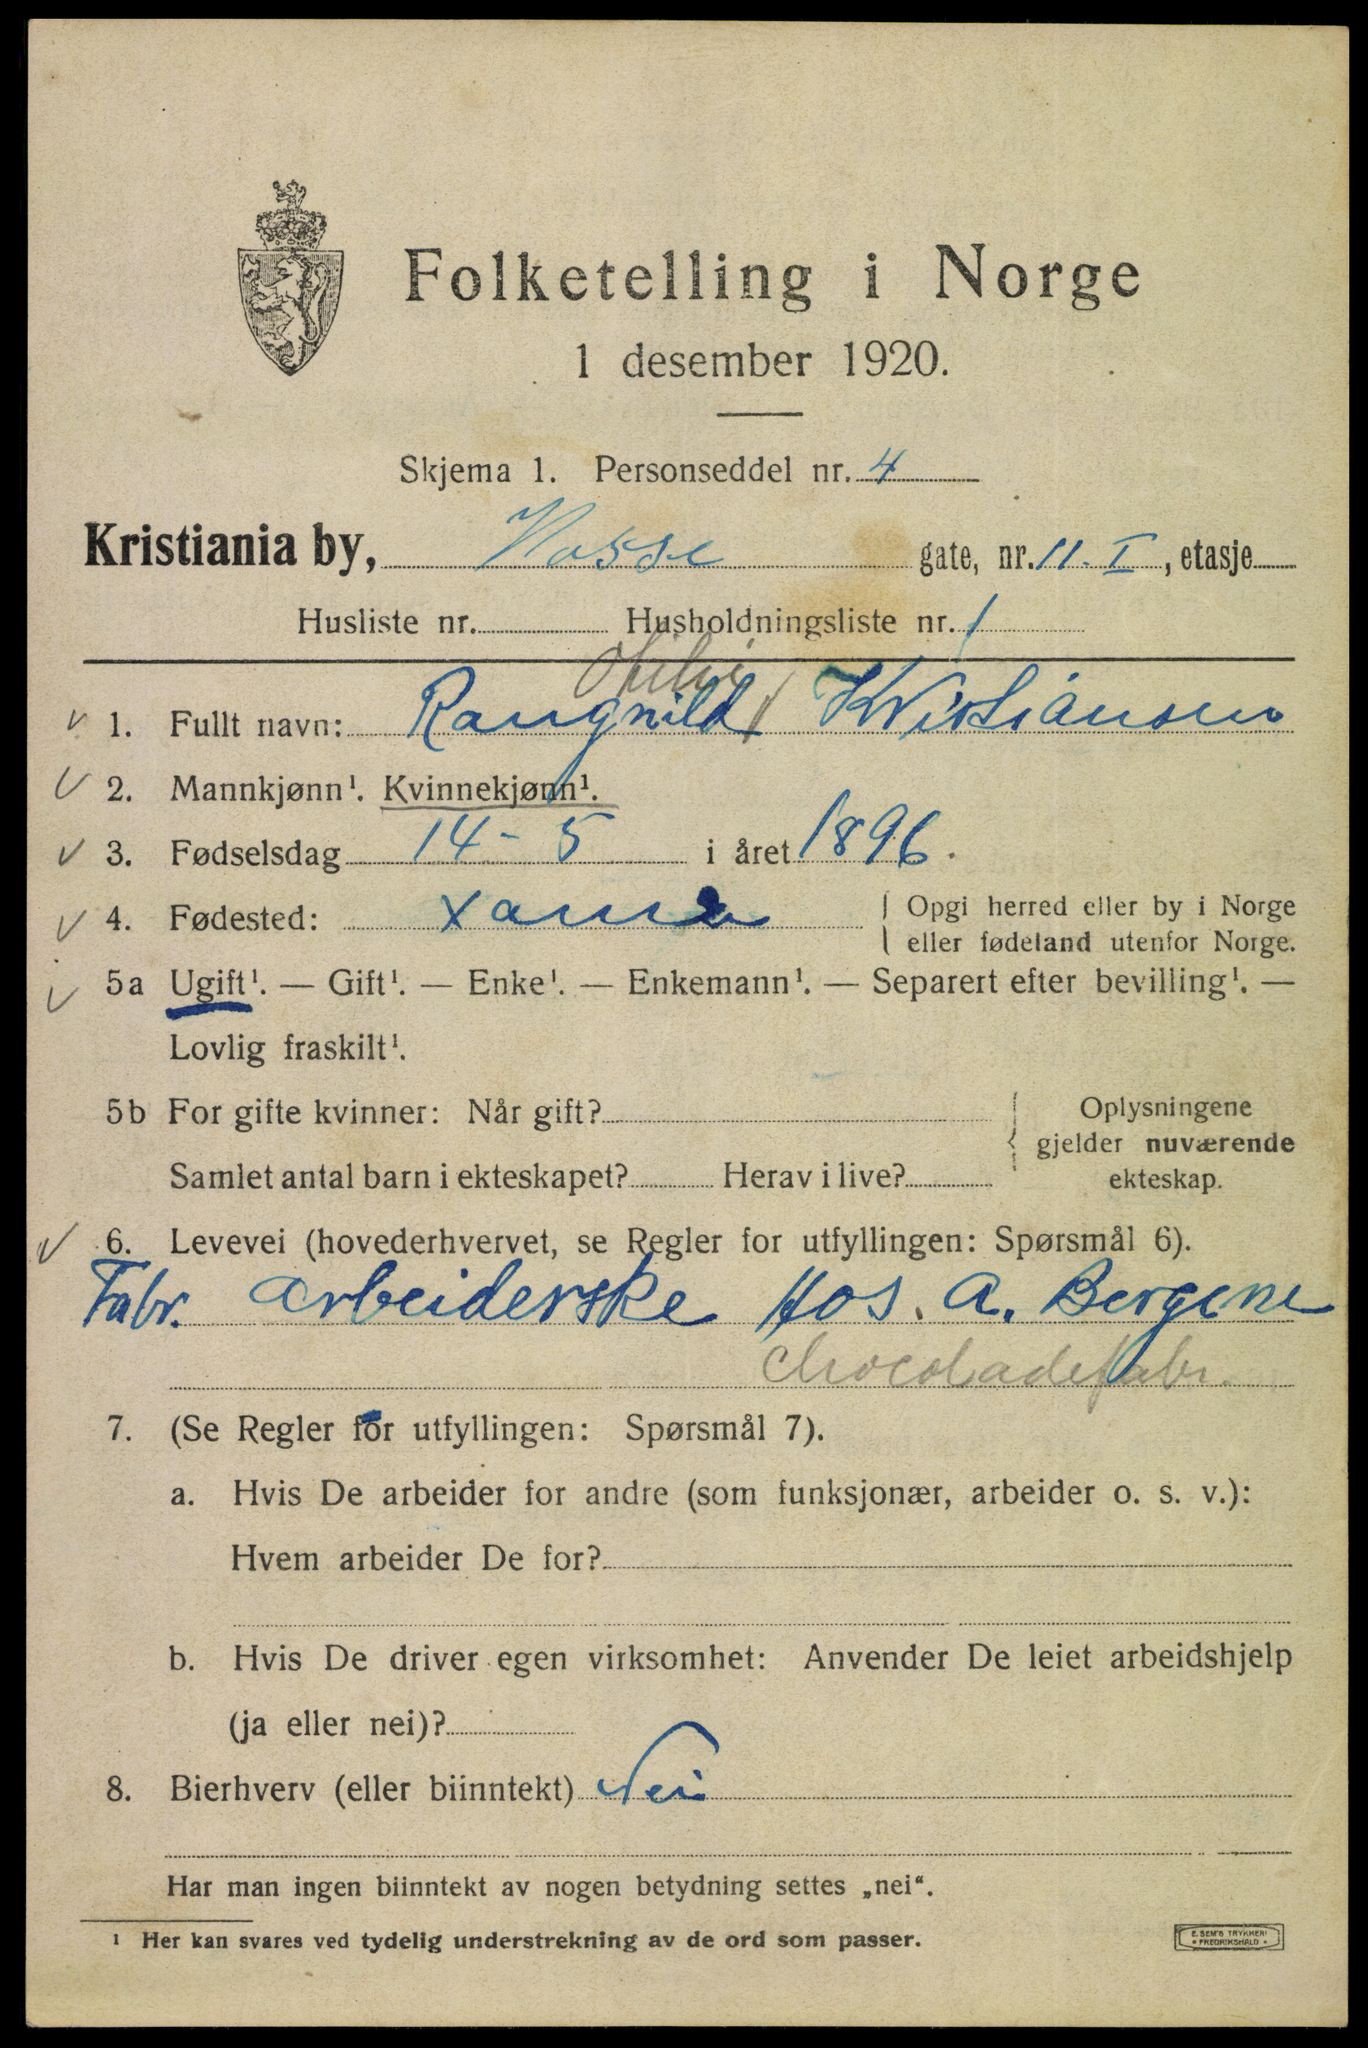 Folketelling i Norge
1 desember 1920.
Skjema 1. Personseddel nr. 4
Kristiania by, Vosse gate, nr. 11. I, etasje
Husliste nr. Husholdningsliste nr. 1
1. Fullt navn: Rangnild Kristiansen
2. Mannkjønn¹. Kvinnekjønn¹.
3. Fødselsdag 14-5 i året 1896.
4. Fødested: Opgi herred eller by i Norge
eller fødeland utenfor Norge.
5a Ugift¹. — Gift¹. — Enke¹. — Enkemann¹. — Separert efter bevilling¹. —
Lovlig fraskilt¹.
5b For gifte kvinner: Når gift? Oplysningene
gjelder nuværende
Samlet antal barn i ekteskapet? Herav i live? ekteskap.
6. Levevei (hovederhvervet, se Regler for utfyllingen: Spørsmål 6).
Fabr. arbeiderske Hos. A. Bergene
Chocoladefabr.
7. (Se Regler for utfyllingen: Spørsmål 7).
a. Hvis De arbeider for andre (som funksjonær, arbeider o. s. v.):
Hvem arbeider De for?
b. Hvis De driver egen virksomhet: Anvender De leiet arbeidshjelp
(ja eller nei)?
8. Bierhverv (eller biinntekt) Nei
Har man ingen biinntekt av nogen betydning settes „nei“.
¹ Her kan svares ved tydelig understrekning av de ord som passer.
E. SEM'S TRYKKERI
FREDRIKSHALD